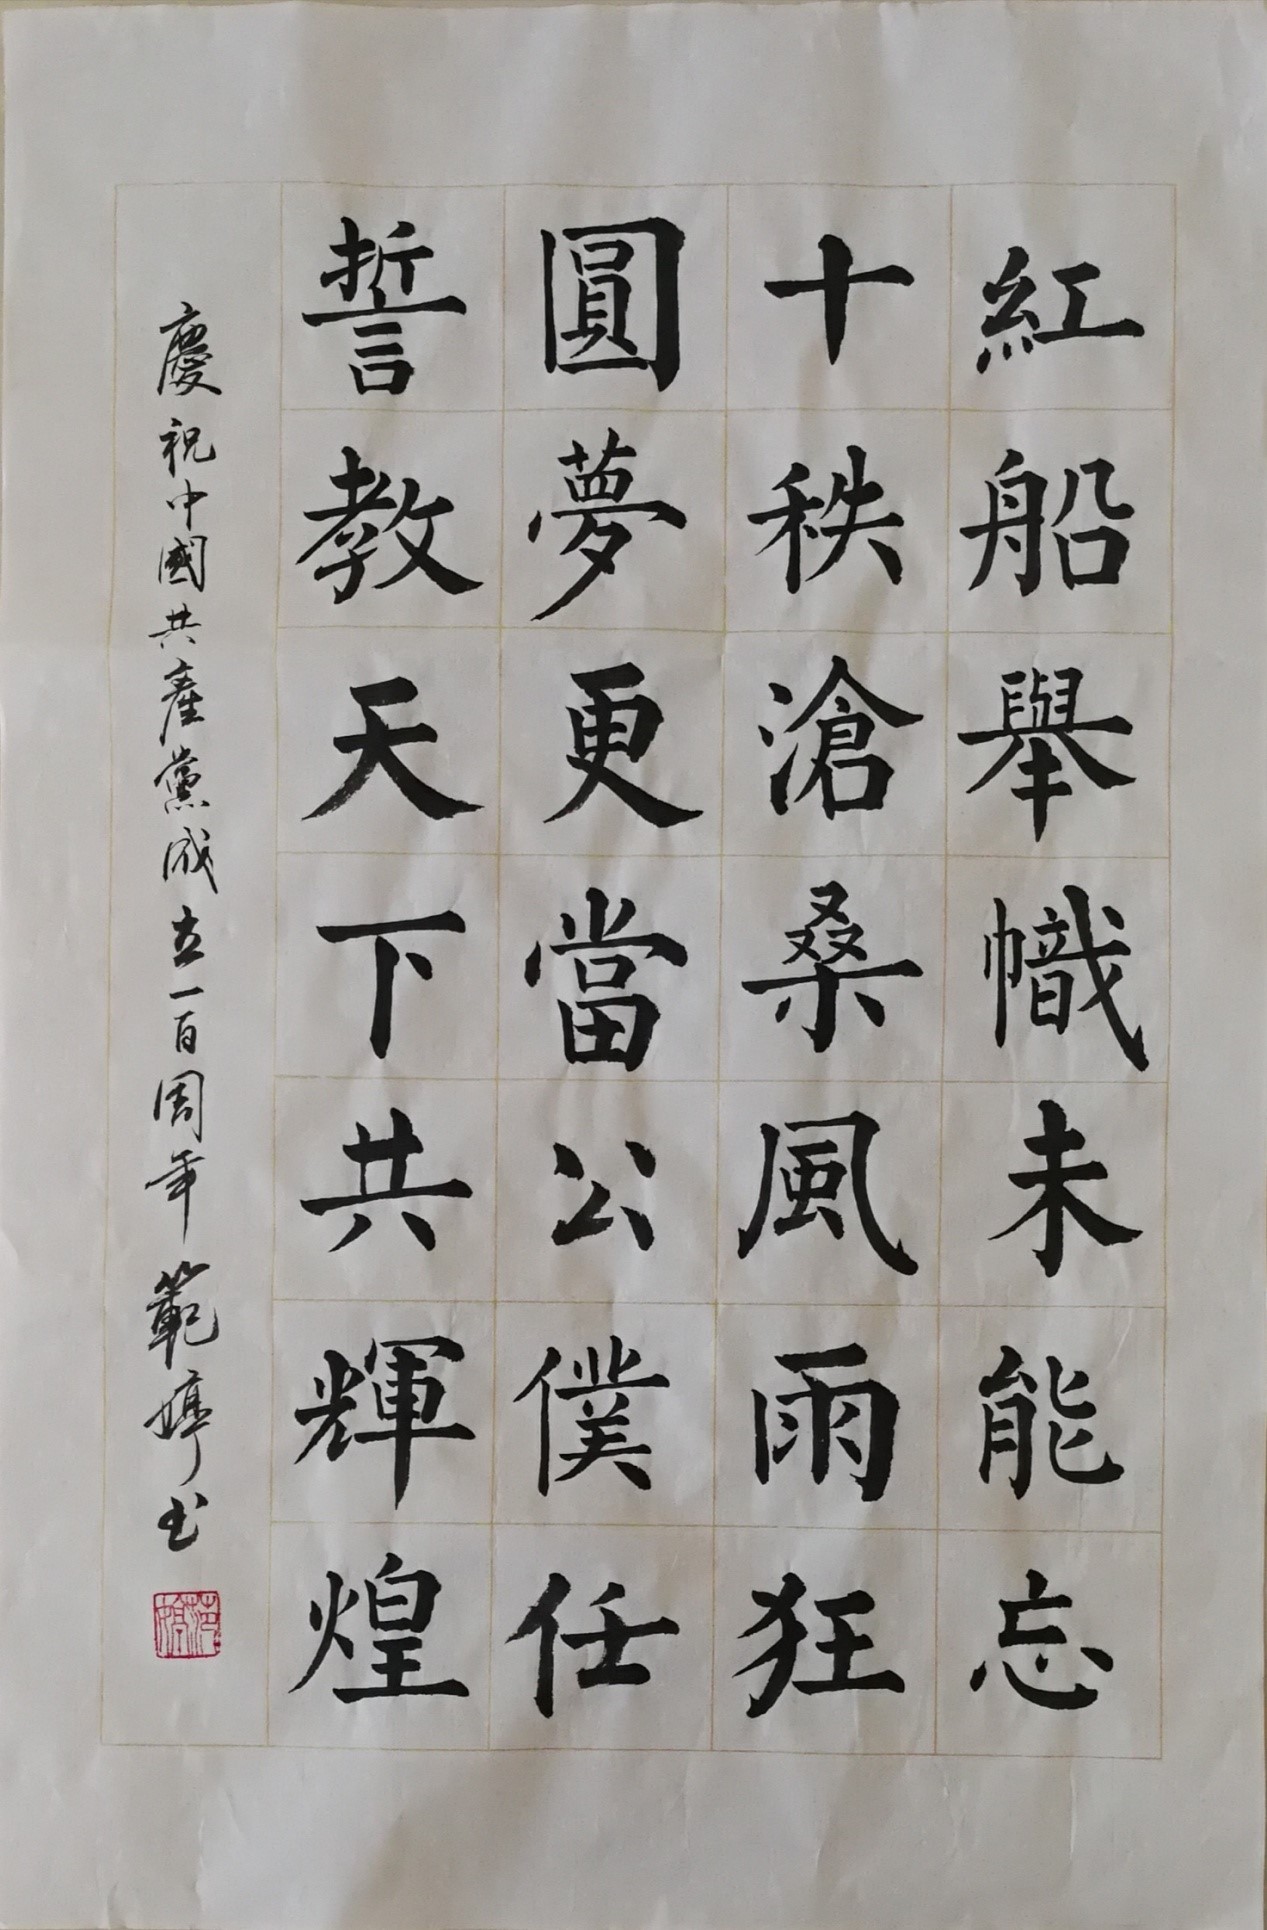 紅船舉幟未能忘
十秩滄桑風雨狂
圓夢更當公僕任
誓教天下共輝煌
慶祝中國共產黨成立一百周年範婷书
范婷